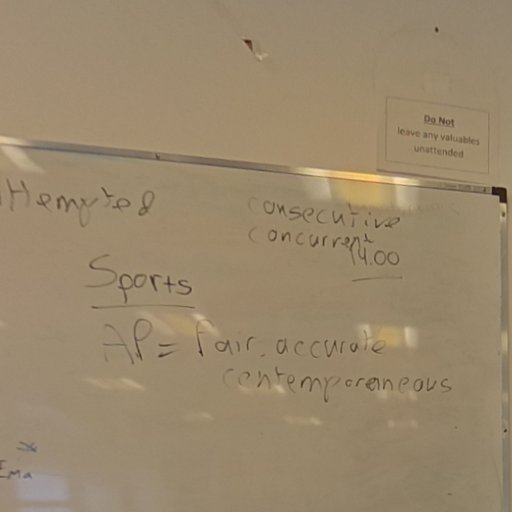 Do Not
leave any valuables
unattended
Attempted
consecutive
concurrent
14.00
Sports
AP = fair, accurate
contemporaneous
Ema